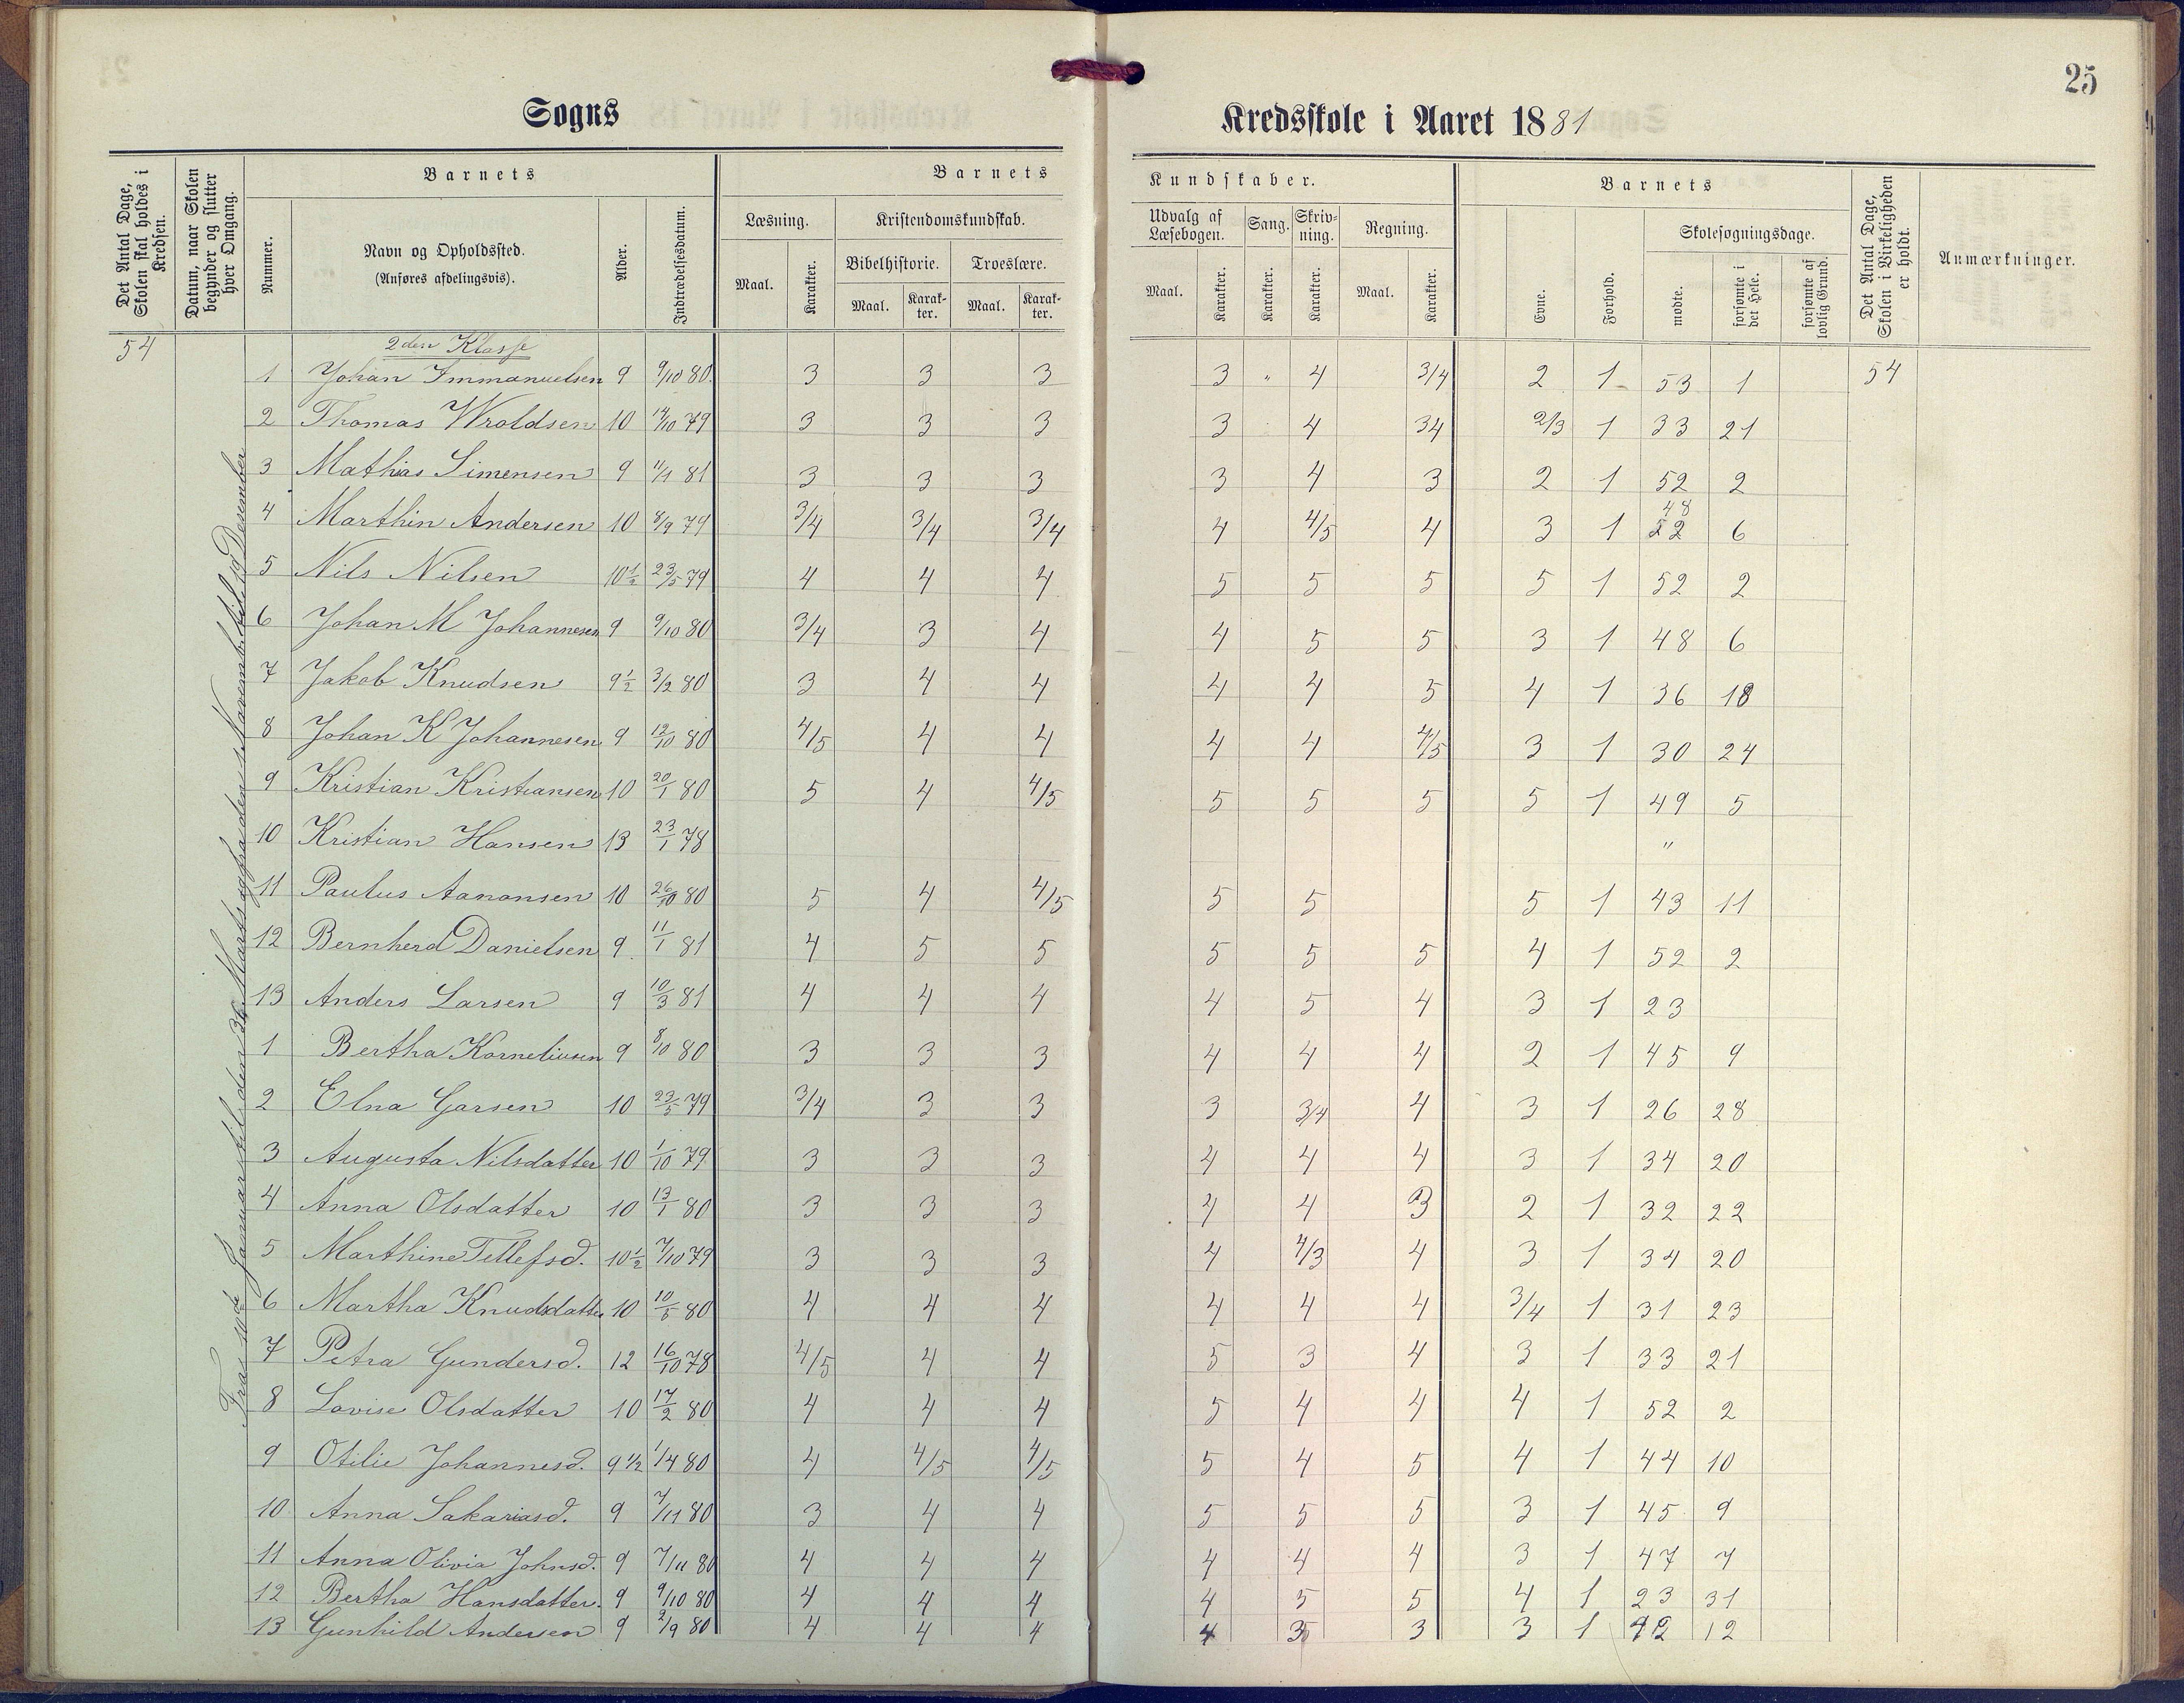 25
Sogns Kredsskole i Aaret 1881
Det Antal Dage, Skolen skal holdes i Kredsen.
Datum, naar Skolen begynder og slutter hver Omgang.
Barnets
Nummer.
Navn og Opholdssted. (Anføres afdelingsvis).
Alder.
Indtrædelsesdatum.
Barnets Kundskaber.
Læsning. Maal. Karakter.
Kristendomskundskab.
Bibelhistorie. Maal. Karakter.
Troeslære. Maal. Karakter.
Udvalg af Læsebogen. Maal. Karakter.
Sang. Karakter.
Skrivning. Karakter.
Regning. Maal. Karakter.
Barnets
Evne.
Forhold.
Skolesøgningsdage.
mødte.
forsømte i det Hele.
forsømte af lovlig Grund.
Det Antal Dage, Skolen i Virkeligheden er holdt.
Anmærkninger.
54
2den Klasse
Fra 10de Januar til den Marts og fra den Novemb. til 19 Desember
1 Johan Immanuelsen 9 9/10 80. 3 3 3 3 " 4 3/4 2 1 53 1 54
2 Thomas Wroldsen 10 14/10 79 3 3 3 3 4 34 2/3 1 33 21
3 Mathias Simensen 9 11/1 81 3 3 3 3 4 3 2 1 52 2
4 Marthin Andersen 10 8/9 79 3/4 3/4 3/4 4 4/5 4 3 1 48 52 6
5 Nils Nilsen 10½ 23/5 79 4 4 4 5 5 5 5 1 52 2
6 Johan M Johannesen 9 9/10 80 3/4 3 4 4 5 5 3 1 48 6
7 Jakob Knudsen 9½ 3/2 80 3 4 4 4 4 5 4 1 36 18
8 Johan K Johannesen 9 12/10 80 4/5 4 4 4 4 4/5 3 1 30 24
9 Kristian Kristiansen 10 20/1 80 5 4 4/5 5 5 5 5 1 49 5
10 Kristian Hansen 13 23/1 78 "
11 Paulus Aanonsen 10 26/10 80 5 4 4/5 5 5 5 1 43 11
12 Bernherd Danielsen 9. 11/1 81 4 5 5 5 5 5 4 1 52 2
13 Anders Larsen 9 10/3 81 4 4 4 4 5 4 3 1 23
1 Bertha Korneliusen 9 8/10 80 3 3 3 4 4 4 2 1 45 9
2 Elna Garsen 10 23/5 79 3/4 3 3 3 3/4 4 3 1 26 28
3 Augusta Nilsdatter 10 1/10 79 3 3 3 4 4 4 3 1 34 20
4 Anna Olsdatter 10 13/1 80 3 3 3 4 4 3 2 1 32 22
5 Marthine Tellefsd. 10½ 7/10 79 3 3 3 4 4/3 4 3 1 34 20
6 Martha Knudsdatter 10 10/5 80 4 4 4 4 4 4 3/4 1 31 23
7 Petra Gundersd. 12 16/10 78 4/5 4 4 5 3 4 3 1 33 21
8 Lovise Olsdatter 10 17/2 80 4 4 4 5 4 4 4 1 52 2
9 Otilie Johannesd. 9½ 1/4 80 4 4/5 4/5 5 4 5 4 1 44 10
10 Anna Sakariasd. 9 7/11 80 3 4 4 5 5 5 3 1 45 9
11 Anna Olivia Johnsd. 9 7/11 80 4 4 4 4 4 4 3 1 47 7
12 Bertha Hansdatter. 9 9/10 80 4 4 4 4 5 5 4 1 23 31
13 Gunhild Andersen 9 2/9 80 4 4 4 4 3 3 1 42 12